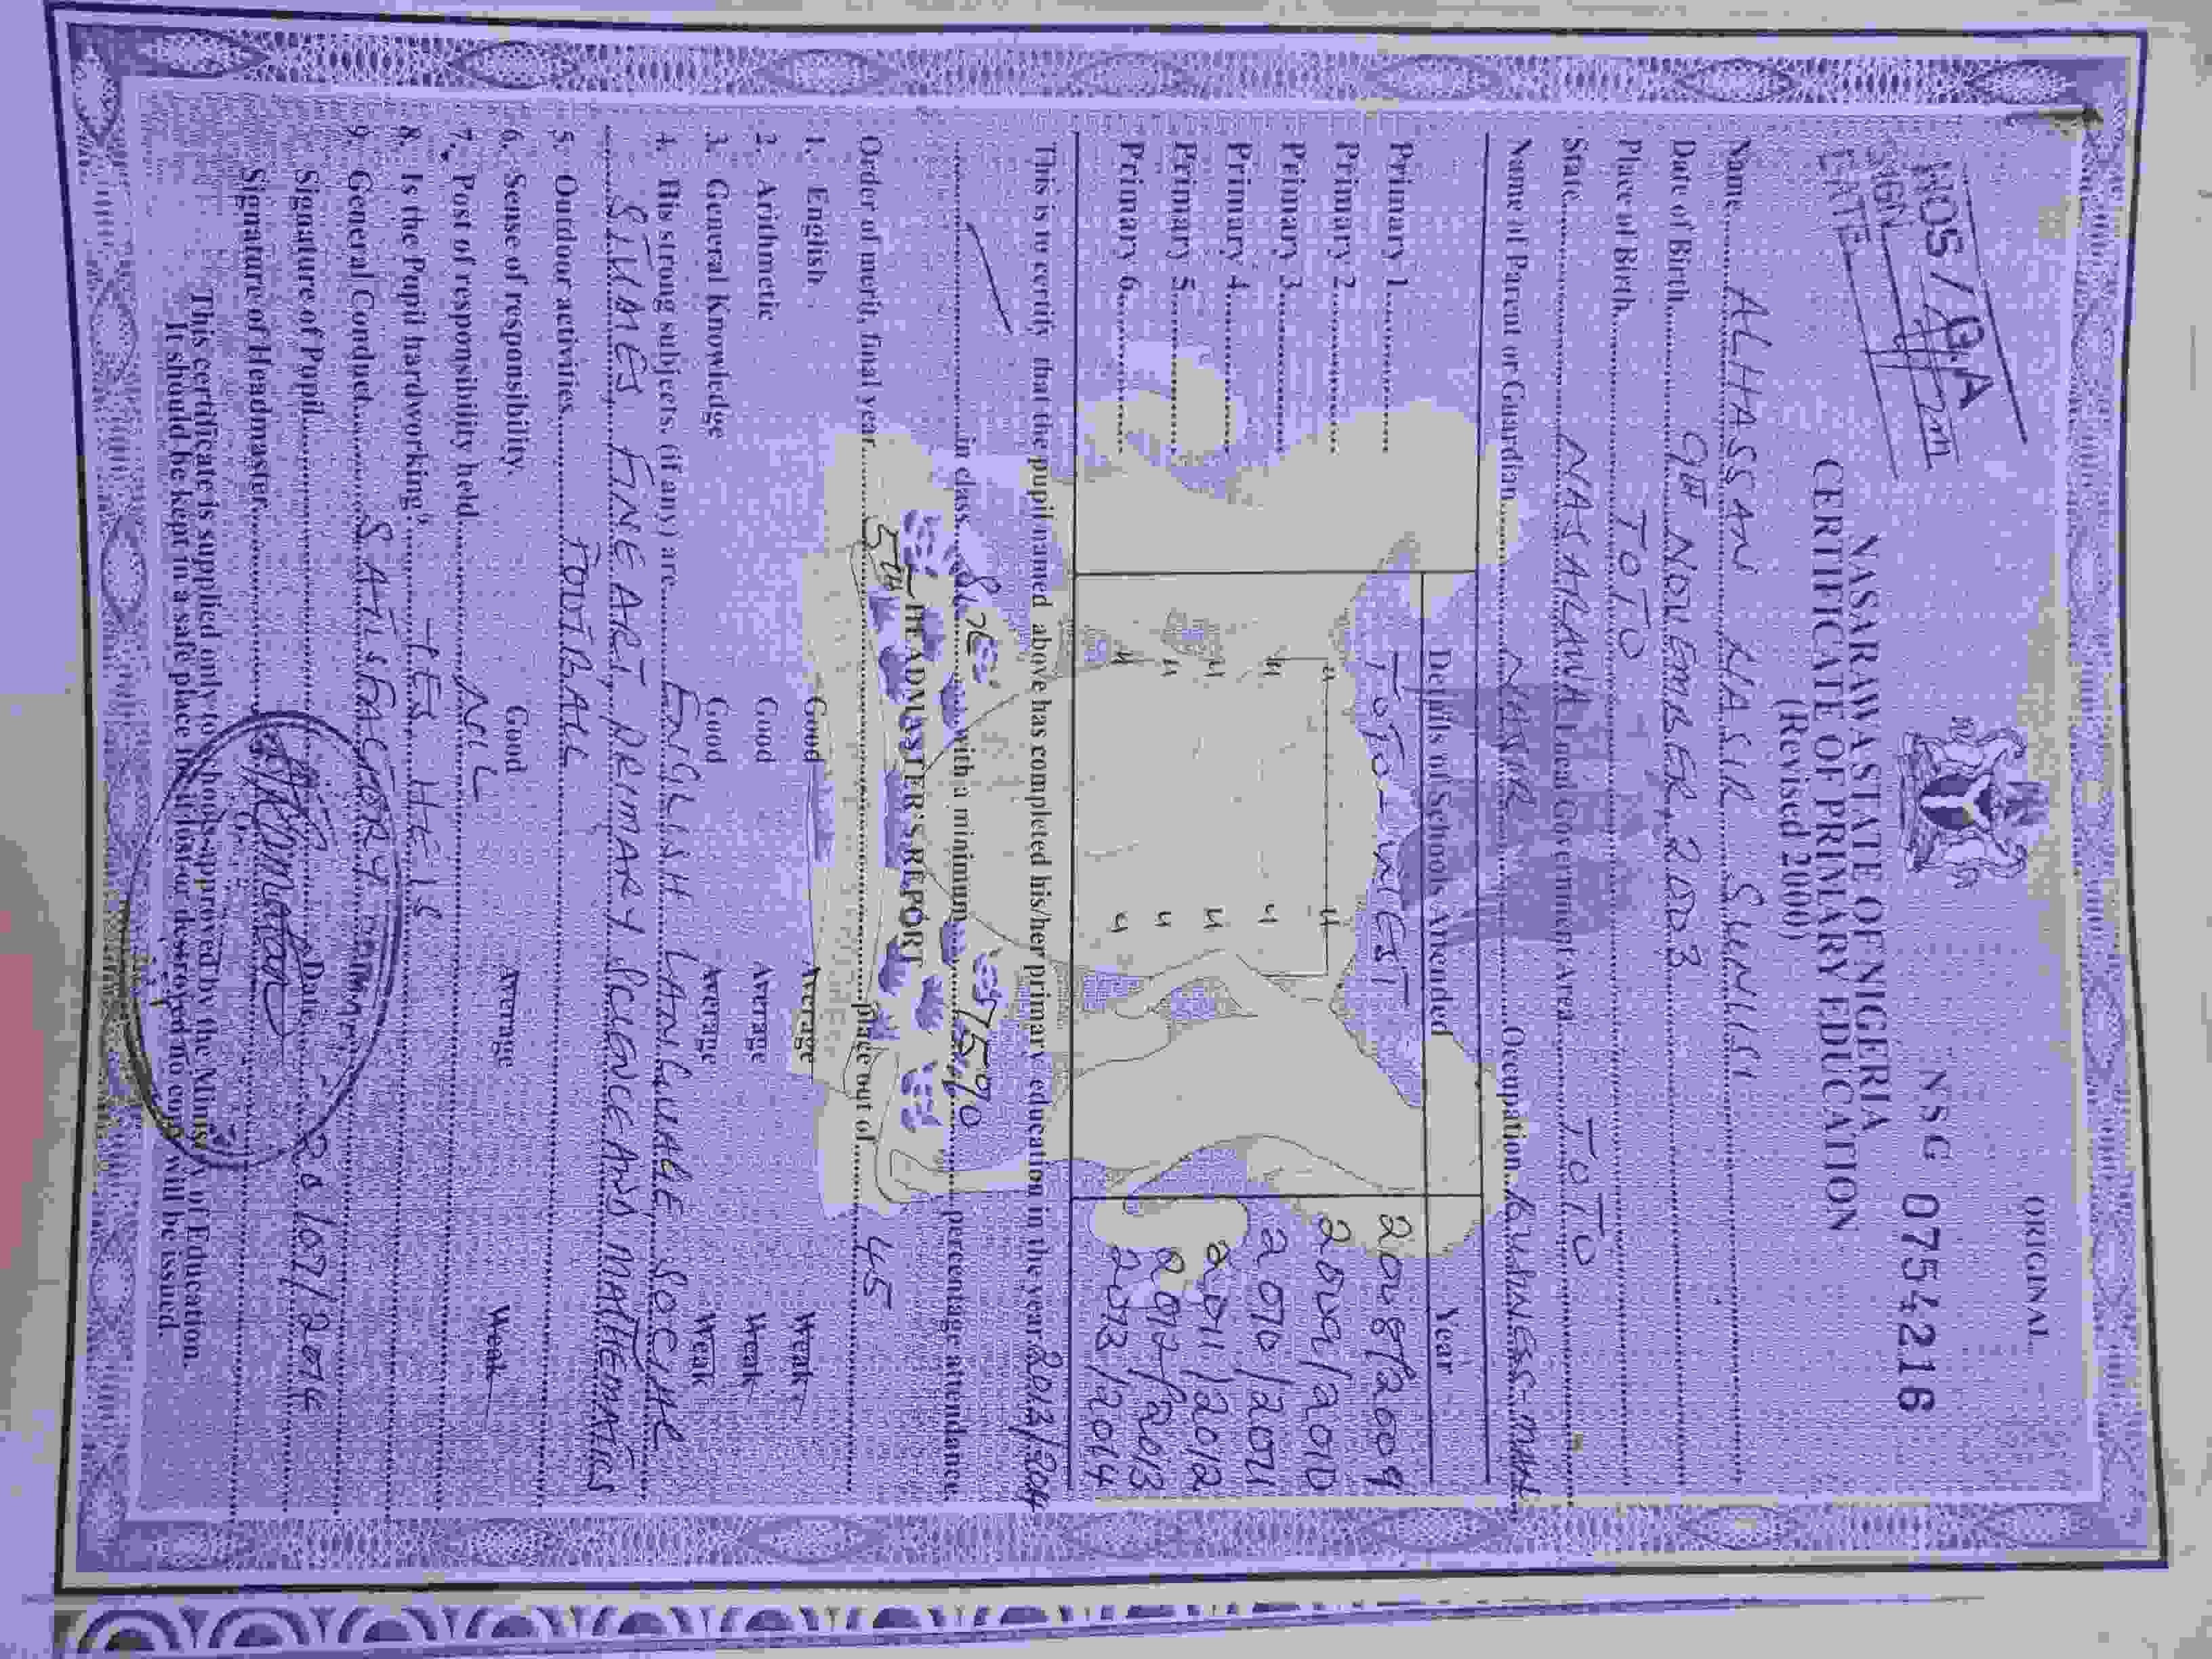 ORIGINAL
NSG 0754216
NASARAWA STATE OF NIGERIA
CERTIFICATE OF PRIMARY EDUCATION
(Revised 2000)
SIGN
DATE
Name ALHASSAN NASIR SUNUSI
Date of Birth 9TH NOVEMBER 2003
Place of Birth TOTO
State NASARAWA Local Government Area TOTO
Name of Parent or Guardian NASIR Occupation BUSINESS-MAN
Details of Schools Attended Year
Primary 1 TOTO-WEST 2008/2009
Primary 2 " " 2009/2010
Primary 3 " " 2010/2011
Primary 4 " " 2011/2012
Primary 5 " " 2012/2013
Primary 6 " " 2013/2014
This is to certify that the pupil named above has completed his/her primary education in the year 2013/2014
in class SIX with a minimum 75% percentage attendance.
HEADMASTER'S REPORT
Order of merit, final year 5TH place out of 45
1. English Good Average Weak
2. Arithmetic Good Average Weak
3. General Knowledge Good Average Weak
4. His strong subjects, (if any) are ENGLISH LANGUAGE SOCIAL
STUDIES, FINE ART, PRIMARY SCIENCE AND MATHEMATICS
5. Outdoor activities FOOTBALL
6. Sense of responsibility Good Average Weak
7. Post of responsibility held NIL
8. Is the Pupil hardworking? YES, HE IS
9. General Conduct SATISFACTORY
Signature of Pupil Date 28/07/2014
Signature of Headmaster
This certificate is supplied only to schools approved by the Ministry of Education.
It should be kept in a safe place for if lost or destroyed no copy will be issued.